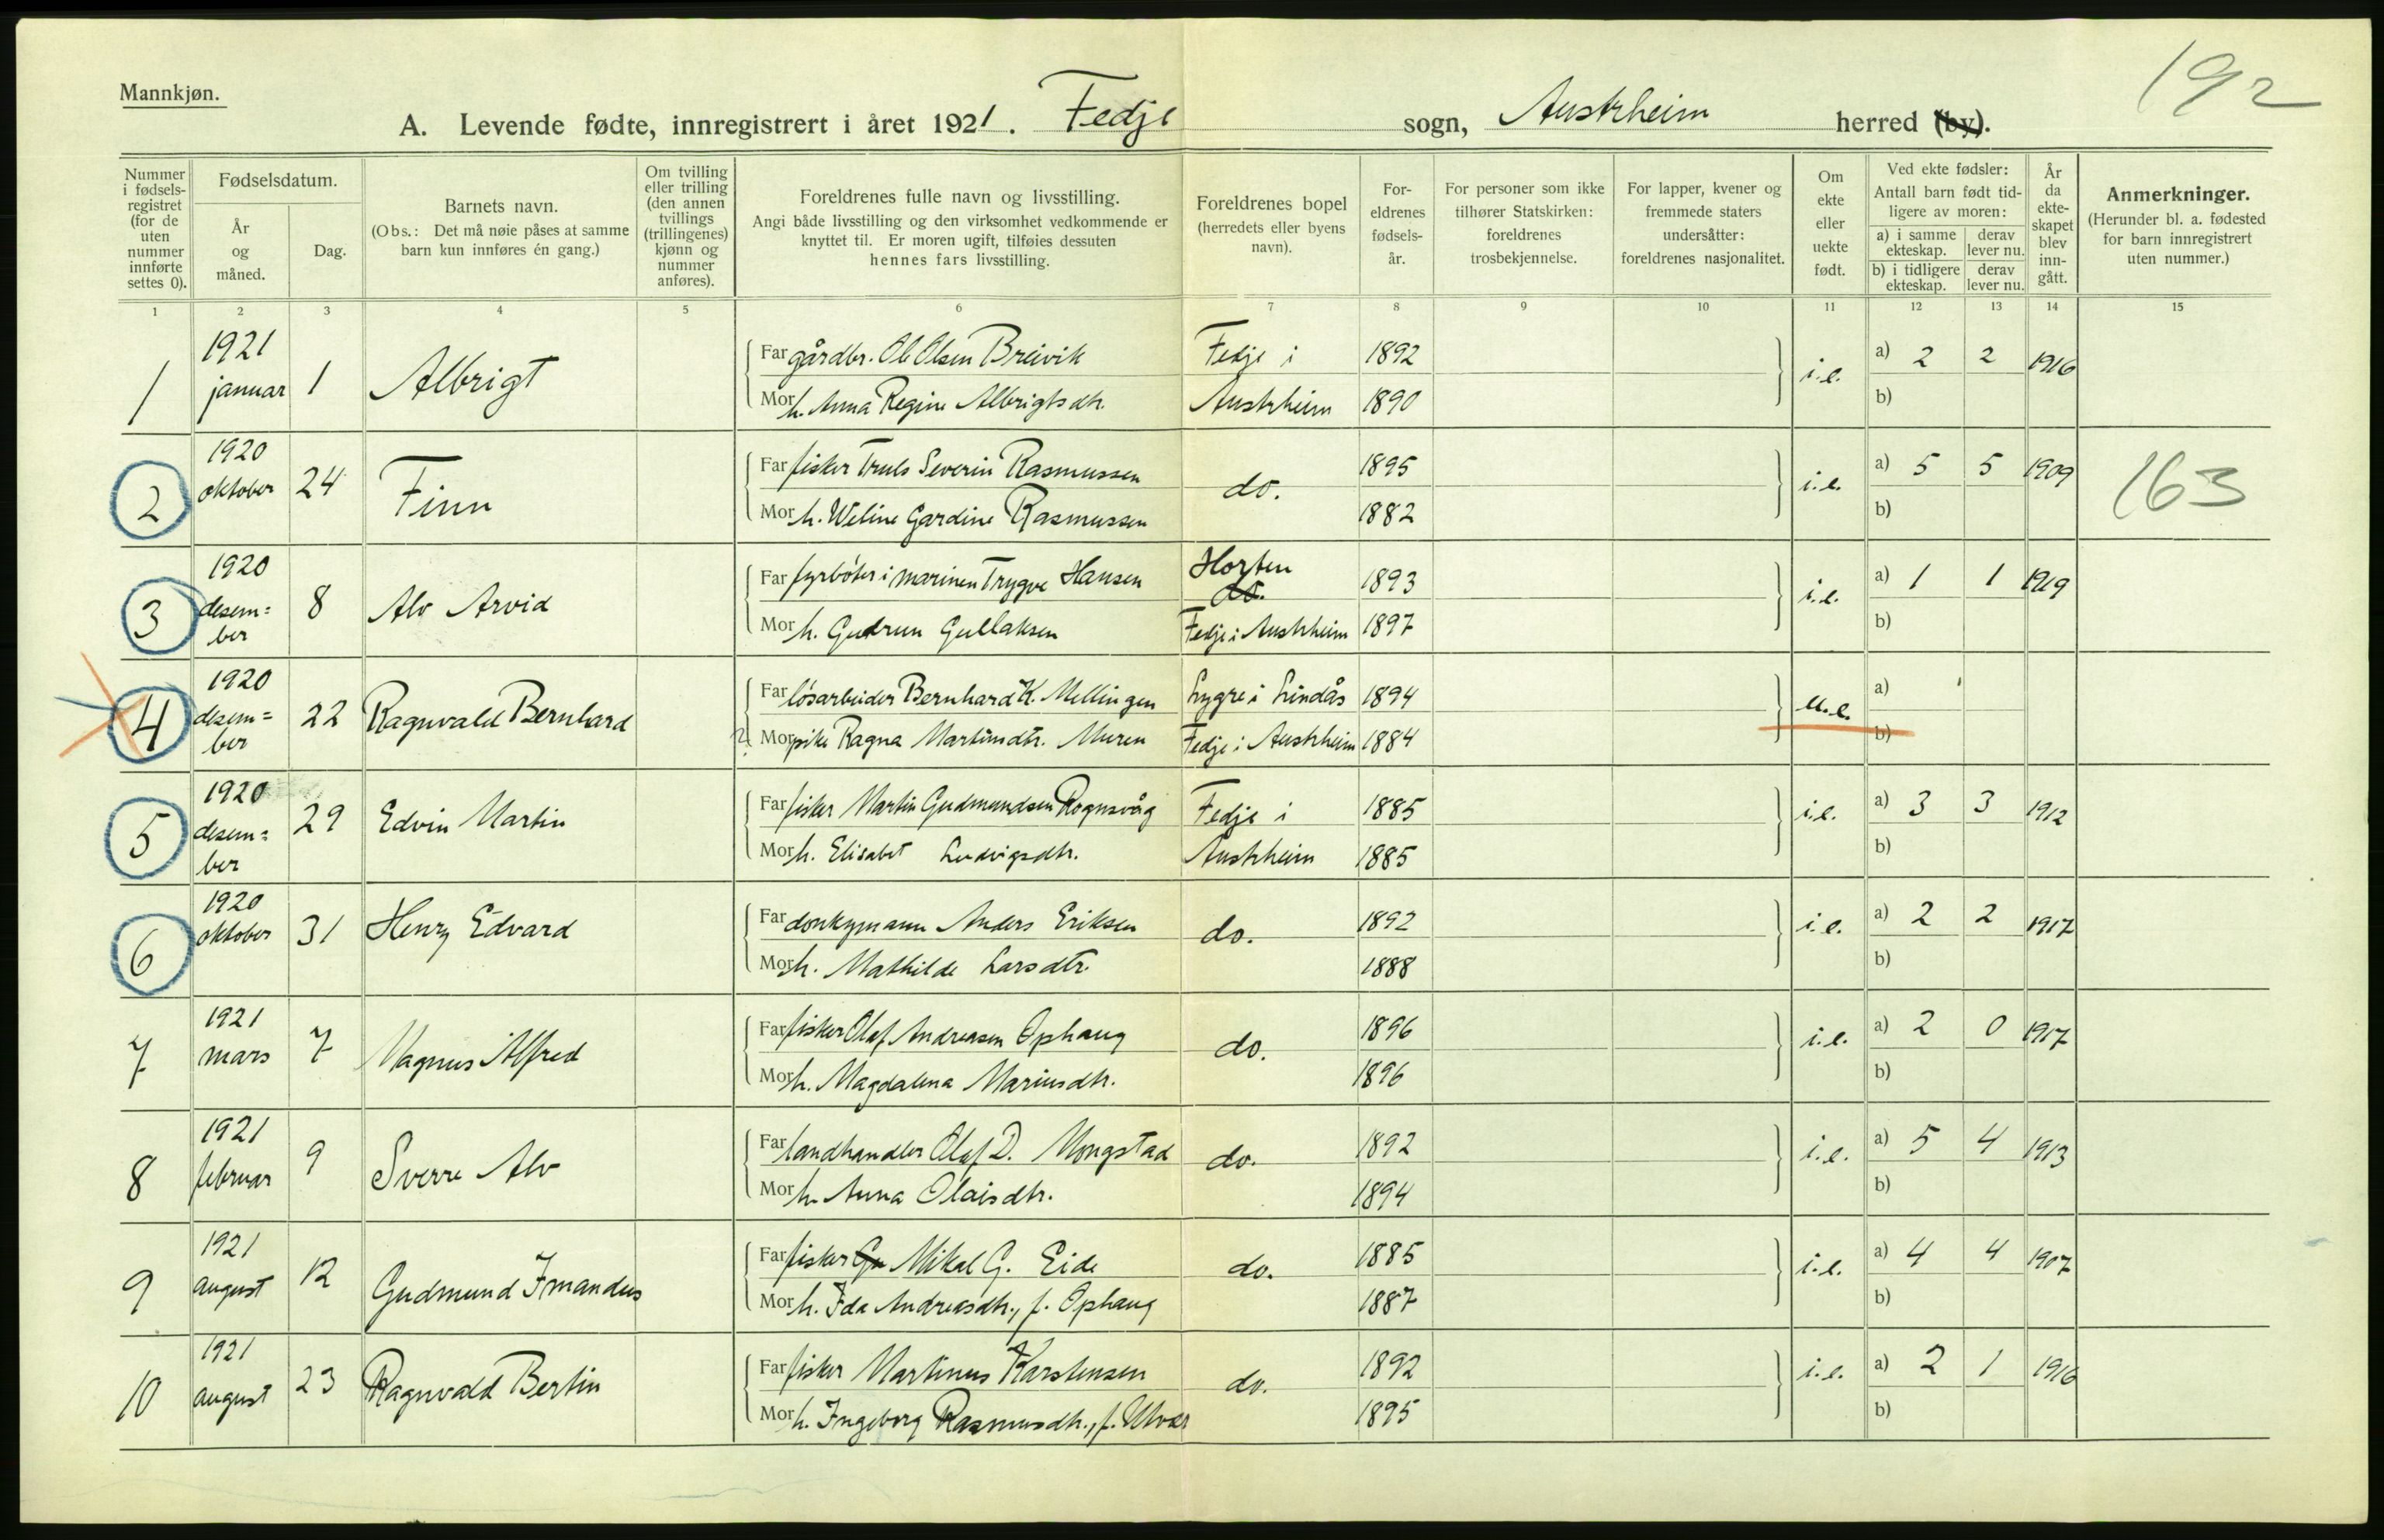 192
Mannkjøn.
A. Levende fødte, innregistrert i året 1921. Fedje sogn, Austrheim herred (by).
Nummer i fødsels-registret (for de uten nummer innførte settes 0).
Fødselsdatum.
År og måned.
Dag.
Barnets navn.
(Obs.: Det må nøie påses at samme barn kun innføres én gang.)
Om tvilling eller trilling (den annen tvillings (trillingenes) kjønn og nummer anføres).
Foreldrenes fulle navn og livsstilling.
Angi både livsstilling og den virksomhet vedkommende er knyttet til. Er moren ugift, tilføies dessuten hennes fars livsstilling.
Foreldrenes bopel (herredets eller byens navn).
For-eldrenes fødsels-år.
For personer som ikke tilhører Statskirken: foreldrenes trosbekjennelse.
For lapper, kvener og fremmede staters undersåtter: foreldrenes nasjonalitet.
Om ekte eller uekte født.
Ved ekte fødsler:
Antall barn født tid-ligere av moren:
a) i samme ekteskap. derav lever nu.
b) i tidligere ekteskap. derav lever nu.
År da ekte-skapet blev inn-gått.
Anmerkninger.
(Herunder bl. a. fødested for barn innregistrert uten nummer.)
1 2 3 4 5 6 7 8 9 10 11 12 13 14 15
1 1921 januar 1 Albrigt Far gårdbr. Ole Olsen Breivik Fedje i 1892 i.e. a) 2 2 1916
Mor h. Anna Regine Albrigtsdtr. Austrheim 1890 b)
2 1920 oktober 24 Finn Far fisker Truls Severin Rasmussen do. 1895 i.e. a) 5 5 1909 163
Mor h. Weline Gardine Rasmussen 1882 b)
3 1920 desem=ber 8 Alv Arvid Far fyrbøter i marinen Trygve Hansen Horten do. 1893 i.e. a) 1 1 1919
Mor h. Gudrun Gullaksen Fedje i Austrheim 1897 b)
4 1920 desem=ber 22 Ragnvald Bernhard Far løsarbeider Bernhard K. Mellingen Lygre i Lindås 1894 u.e. a)
Mor pike Ragna Martinsdtr. Muren Fedje i Austrheim 1884 b)
5 1920 desem=ber 29 Edvin Martin Far fisker Martin Gudmundsen Rognsvåg Fedje i 1885 i.e. a) 3 3 1912
Mor h. Elisabet Ludvigsdtr. Austrheim 1885 b)
6 1920 oktober 31 Henry Edvard Far donkymann Anders Eriksen do. 1892 i.e. a) 2 2 1917
Mor h. Mathilde Larsdtr. 1888 b)
7 1921 mars 7 Magnus Alfred Far fisker Olaf Andreasen Ophaug do. 1896 i.e. a) 2 0 1917
Mor h. Magdalena Mariusdtr. 1896 b)
8 1921 februar 9 Sverre Alv Far landhandler Olaf D. Mongstad do. 1892 i.e. a) 5 4 1913
Mor h. Anna Olaisdtr. 1894 b)
9 1921 august 12 Gudmund Imandus Far fisker Gu Mikal G. Eide do. 1885 i.e. a) 4 4 1907
Mor h. Ida Andreasdtr., f. Ophaug 1887 b)
10 1921 august 23 Ragnvald Bertin Far fisker Martinus Karstensen do. 1892 i.e. a) 2 1 1916
Mor h. Ingeborg Rasmusdtr., f. Utvær 1895 b)